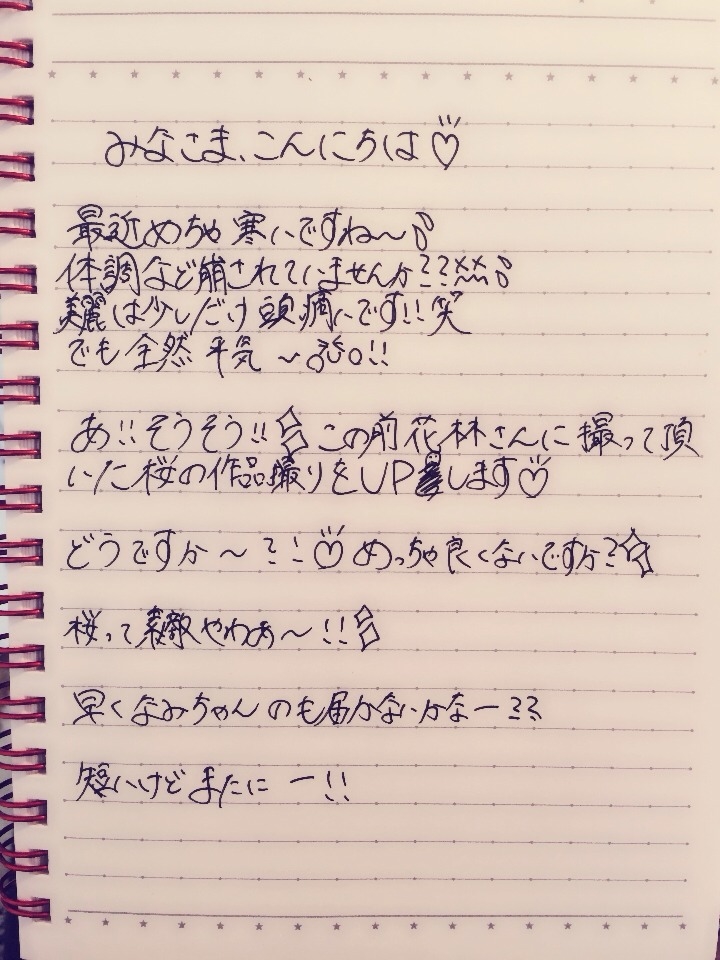 みなさま、こんにちは♡
最近めちゃ寒いですね〜
体調など崩されていませんか??
美麗は少しだけ頭痛いです!!笑
でも全然平気〜!!
あ!!そうそう!!この前花林さんに撮って頂
いた桜の作品撮りをUPします♡
どうですか〜?!♡めっちゃ良くないですか?
桜って素敵やわぁ〜!!
早くなみちゃんのも届かないかなー??
短いけどまたにー!!